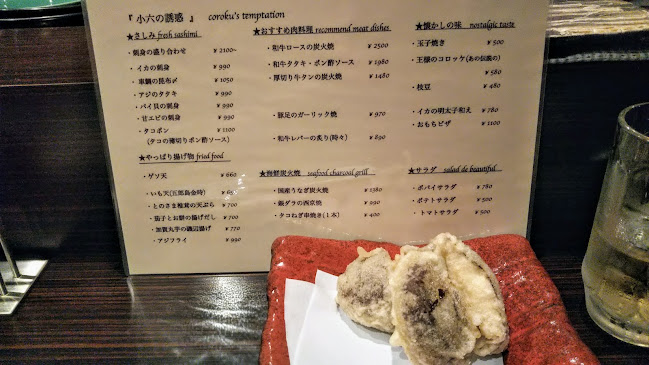 『 小六の誘惑 』 coroku's temptation
★さしみ fresh sashimi
・刺身の盛り合わせ ¥2100~
・イカの刺身 ¥990
・車鯛の昆布〆 ¥1050
・アジのタタキ ¥990
・バイ貝の刺身 ¥990
・甘エビの刺身 ¥990
・タコポン ¥1100
(タコの薄切りポン酢ソース)
★やっぱり揚げ物 fried food
・ゲソ天 ¥660
・いも天(五郎島金時)
・とのさま椎茸の天ぷら ¥700
・茄子とお餅の揚げだし ¥700
・加賀丸芋の磯辺揚げ ¥770
・アジフライ ¥990
★おすすめ肉料理 recommend meat dishes
・和牛ロースの炭火焼 ¥2500
・和牛タタキ・ポン酢ソース ¥1980
・厚切り牛タンの炭火焼 ¥1480
・豚足のガーリック焼 ¥970
・和牛レバーの炙り(時々) ¥890
★海鮮炭火焼 seafood charcoal grill
・国産うなぎ炭火焼 ¥1380
・銀ダラの西京焼 ¥990
・タコねぎ串焼き(1本) ¥400
★懐かしの味 nostalgic taste
・玉子焼き ¥500
・王様のコロッケ(あの伝説の)
¥580
・枝豆 ¥480
・イカの明太子和え ¥780
・おもちピザ ¥1100
★サラダ salad de beautiful
・ポパイサラダ ¥780
・ポテトサラダ ¥500
・トマトサラダ ¥500